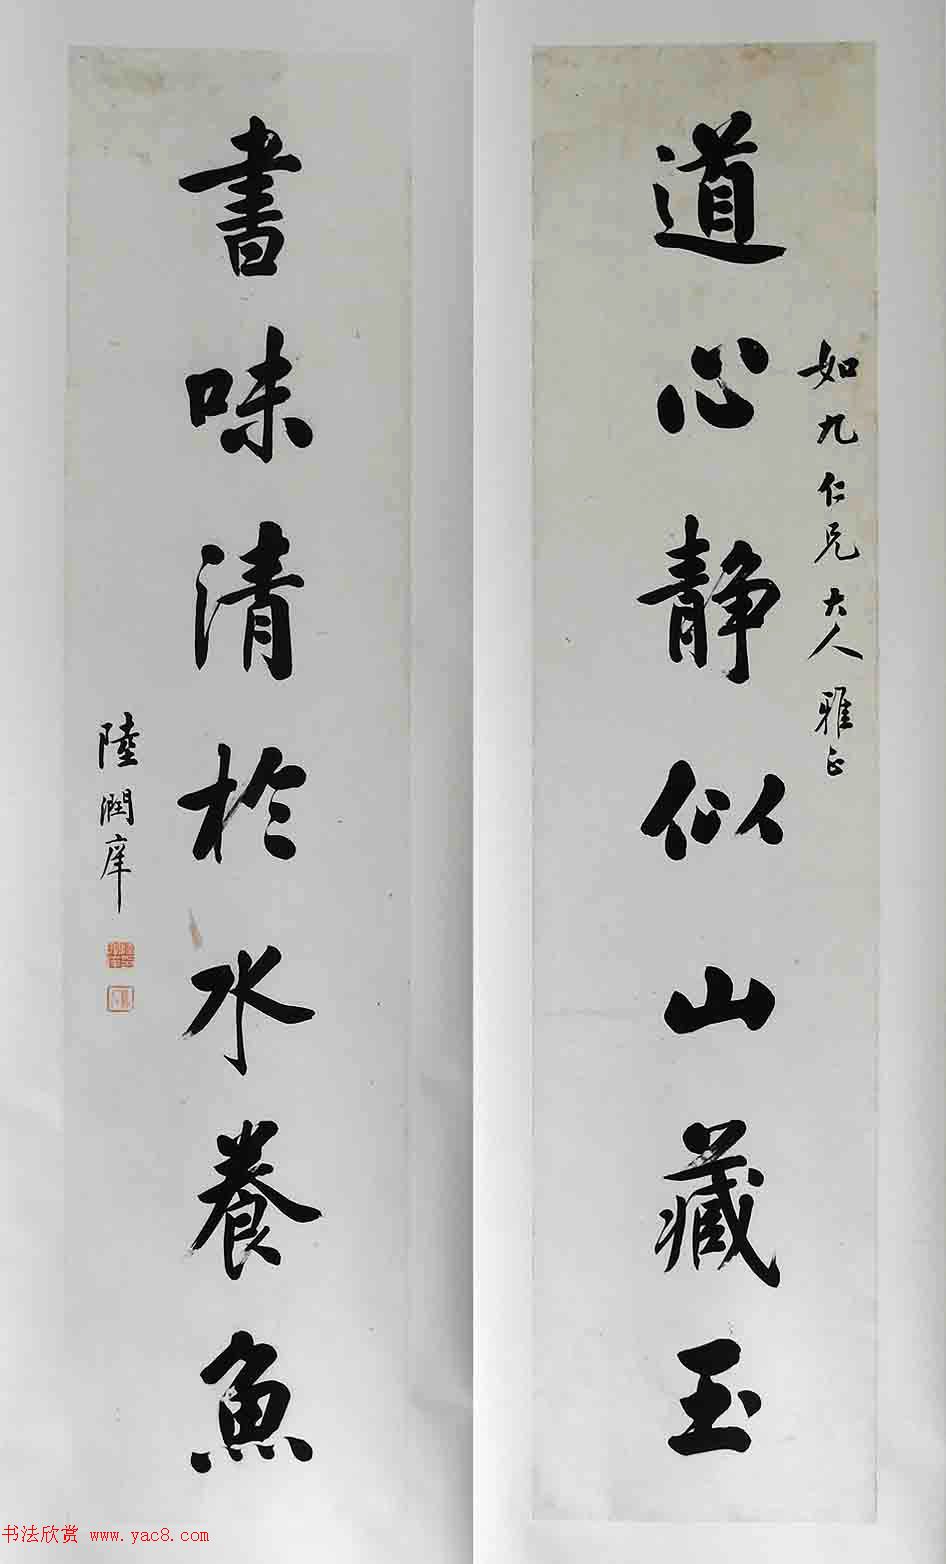 如九仁兄大人雅正
道心静似山藏玉
書味清於水養魚
陸潤庠
书法欣赏 www.yac8.com